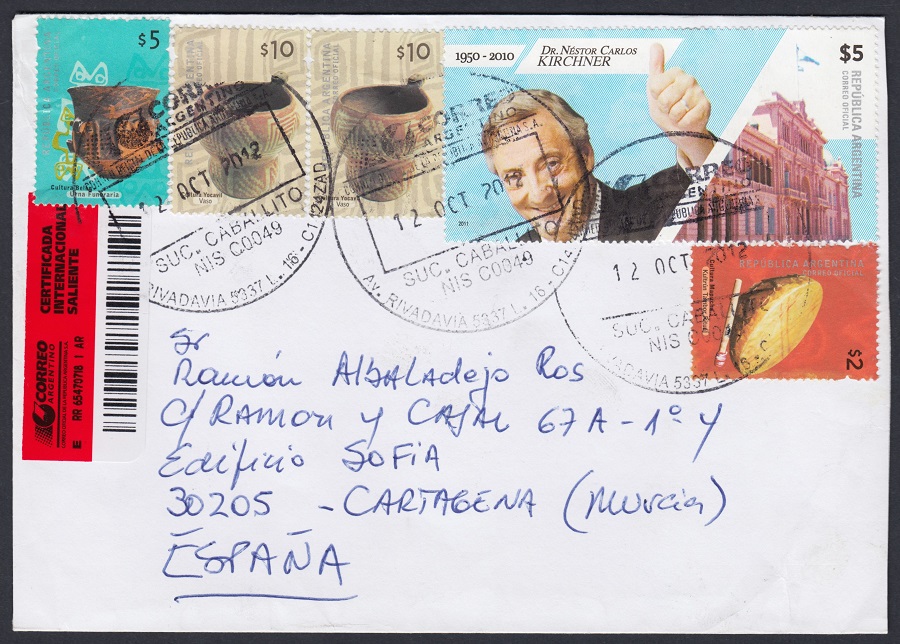 $5
REPÚBLICA ARGENTINA
CORREO OFICIAL
Cultura Belén
Urna Funeraria
$10
Cultura Yocavil
Vaso
$10
ARGENTINA
CORREO OFICIAL
Cultura Yocavil
Vaso
1950 - 2010
DR. NÉSTOR CARLOS
KIRCHNER
$5
REPÚBLICA ARGENTINA
CORREO OFICIAL
2011
REPÚBLICA ARGENTINA
CORREO OFICIAL
Cultura Mapuche
$2
CORREO
ARGENTINO
12 OCT 2012
SUC. CABALLITO
NIS C0049
RIVADAVIA 5337 L. 16 - C1424
CORREO
ARGENTINO
12 OCT 2012
SUC. CABALLITO
NIS C0049
AV. RIVADAVIA 5337 L. 16 - C14
12 OCT 2012
SUC. CABALLITO
NIS C0049
RIVADAVIA 5337 L.
CERTIFICADA
INTERNACIONAL
SALIENTE
CORREO
ARGENTINO
CORREO OFICIAL DE LA REPUBLICA ARGENTINA S.A.
E RR 65470718 1 AR
Sr
Ramón Albaladejo Ros
C/ RAMON y CAJAL 67A - 1º Y
Edificio SOFIA
30205 - CARTAGENA (Murcia)
ESPAÑA